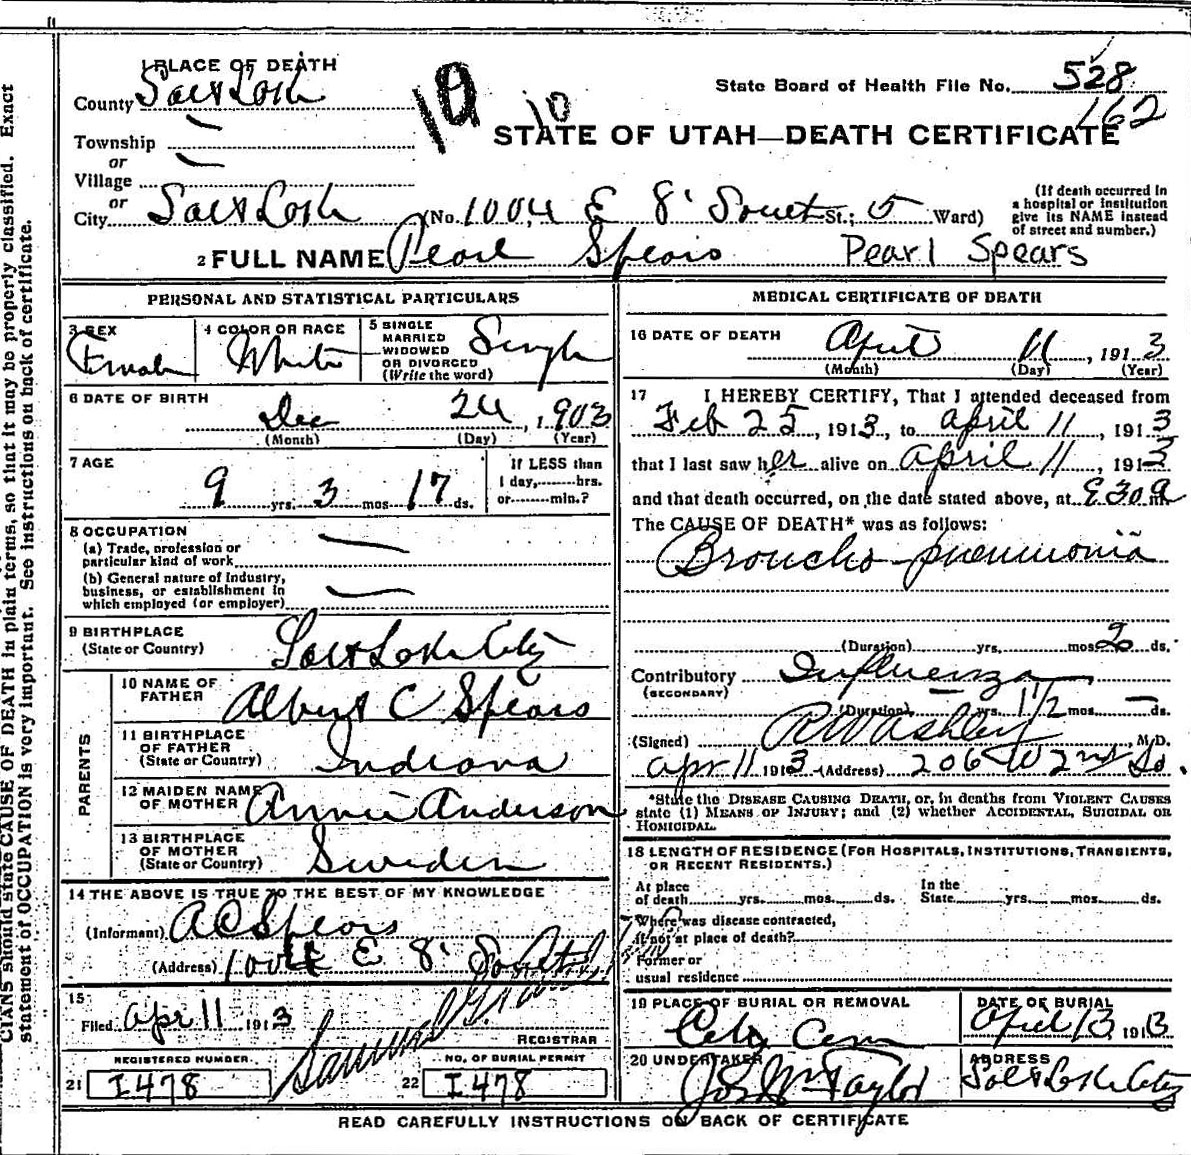 1 PLACE OF DEATH
County Salt Lake
Township —
or
Village —
or
City Salt Lake (No. 1004 E 8' South St.; 5 Ward)
(If death occurred in a hospital or institution give its NAME instead of street and number.)
10 10
State Board of Health File No. 528
162
STATE OF UTAH—DEATH CERTIFICATE
2 FULL NAME Pearl Spears Pearl Spears
PERSONAL AND STATISTICAL PARTICULARS
3 SEX Female
4 COLOR OR RACE White
5 SINGLE MARRIED WIDOWED OR DIVORCED (Write the word) Single
6 DATE OF BIRTH Dec 24, 1903
(Month) (Day) (Year)
7 AGE 9 yrs. 3 mos 17 ds.
If LESS than 1 day, hrs. or min.?
8 OCCUPATION
(a) Trade, profession or particular kind of work —
(b) General nature of Industry, business, or establishment in which employed (or employer) —
9 BIRTHPLACE (State or Country) Salt Lake City
PARENTS
10 NAME OF FATHER Albert C Spears
11 BIRTHPLACE OF FATHER (State or Country) Indiana
12 MAIDEN NAME OF MOTHER Annie Anderson
13 BIRTHPLACE OF MOTHER (State or Country) Sweden
14 THE ABOVE IS TRUE TO THE BEST OF MY KNOWLEDGE
(Informant) A C Spears
(Address) 1004 E 8' So
15 Filed Apr 11 1913
REGISTRAR
21 REGISTERED NUMBER I478
22 NO. OF BURIAL PERMIT I478
MEDICAL CERTIFICATE OF DEATH
16 DATE OF DEATH April 11, 1913
(Month) (Day) (Year)
17 I HEREBY CERTIFY, That I attended deceased from
Feb 25, 1913, to april 11, 1913
that I last saw her alive on april 11, 1913
and that death occurred, on the date stated above, at 830 a
The CAUSE OF DEATH* was as follows:
Broncho pneumonia
(Duration) yrs. mos 2 ds.
Contributory (SECONDARY) Influenza
(Duration) — yrs 1 1/2 mos. — ds.
(Signed) R W Ashley, M.D.
apr 11 1913 (Address) 206 W 2nd So.
*State the DISEASE CAUSING DEATH, or, in deaths from VIOLENT CAUSES
state (1) MEANS OF INJURY; and (2) whether ACCIDENTAL, SUICIDAL OR
HOMICIDAL.
18 LENGTH OF RESIDENCE (FOR HOSPITALS, INSTITUTIONS, TRANSIENTS,
OR RECENT RESIDENTS.)
At place of death yrs. mos. ds. In the State yrs. mos. ds.
Where was disease contracted,
if not at place of death?
Former or
usual residence
19 PLACE OF BURIAL OR REMOVAL City Cem
DATE OF BURIAL April 13, 1913
20 UNDERTAKER Jos Wm Taylor
ADDRESS Salt Lake City
READ CAREFULLY INSTRUCTIONS ON BACK OF CERTIFICATE
CIANS should state CAUSE OF DEATH in plain terms, so that it may be properly classified. Exact
statement of OCCUPATION is very important. See instructions on back of certificate.